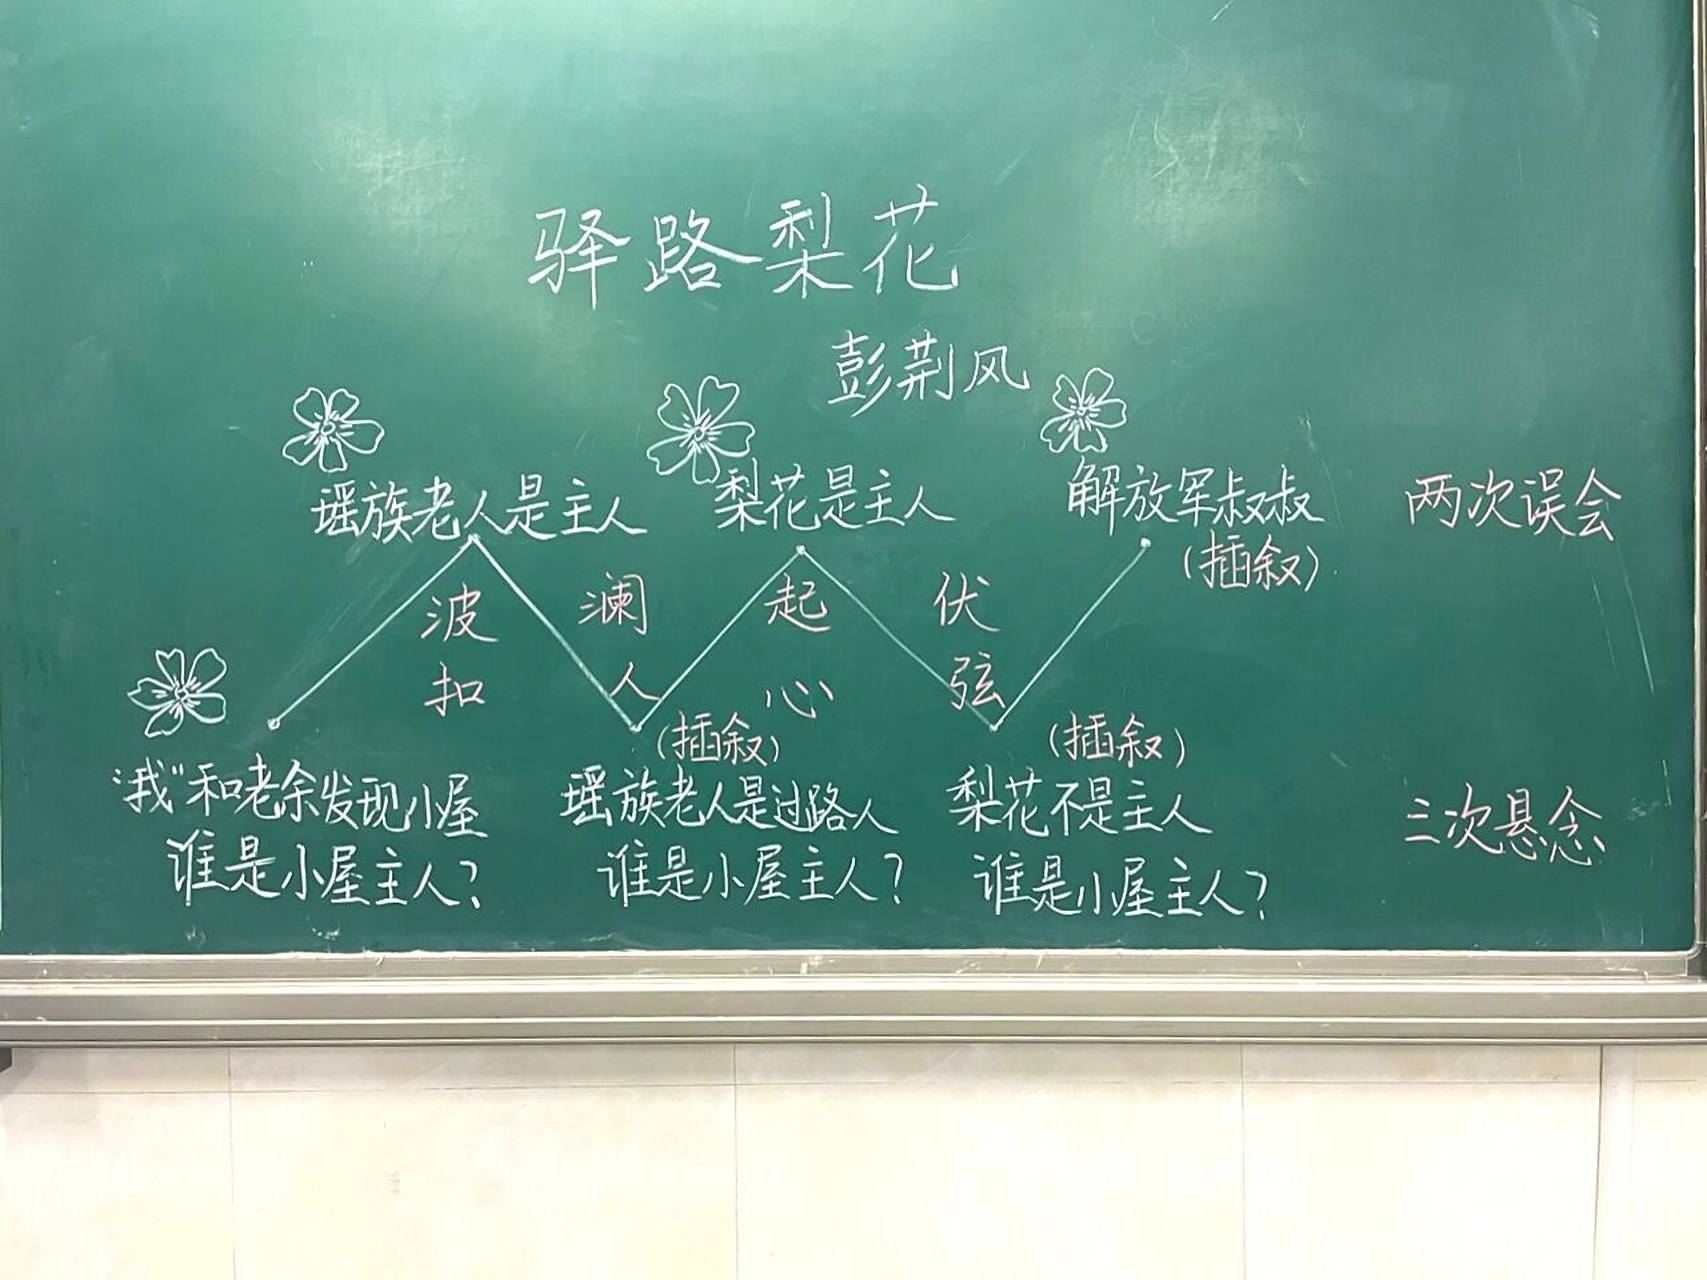 驿路梨花
彭荆风
瑶族老人是主人 梨花是主人 解放军叔叔 两次误会
(插叙)
波澜起伏
扣人心弦
(插叙) (插叙)
"我"和老余发现小屋 瑶族老人是过路人 梨花不是主人 三次悬念
谁是小屋主人? 谁是小屋主人? 谁是小屋主人?